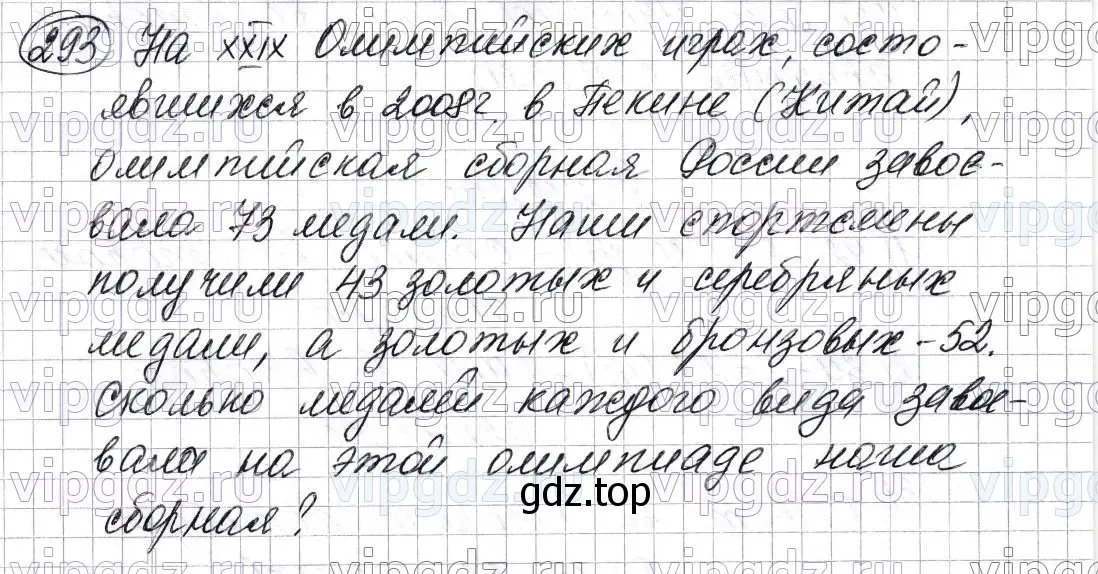 293 На XXIX Олимпийских играх, состо-
явшихся в 2008г. в Пекине (Китай),
олимпийская сборная России завое-
вала 73 медали. Наши спортсмены
получили 43 золотых и серебряных
медали, а золотых и бронзовых - 52.
Сколько медалей каждого вида завое-
вала на этой олимпиаде наша
gdz.top
сборная?